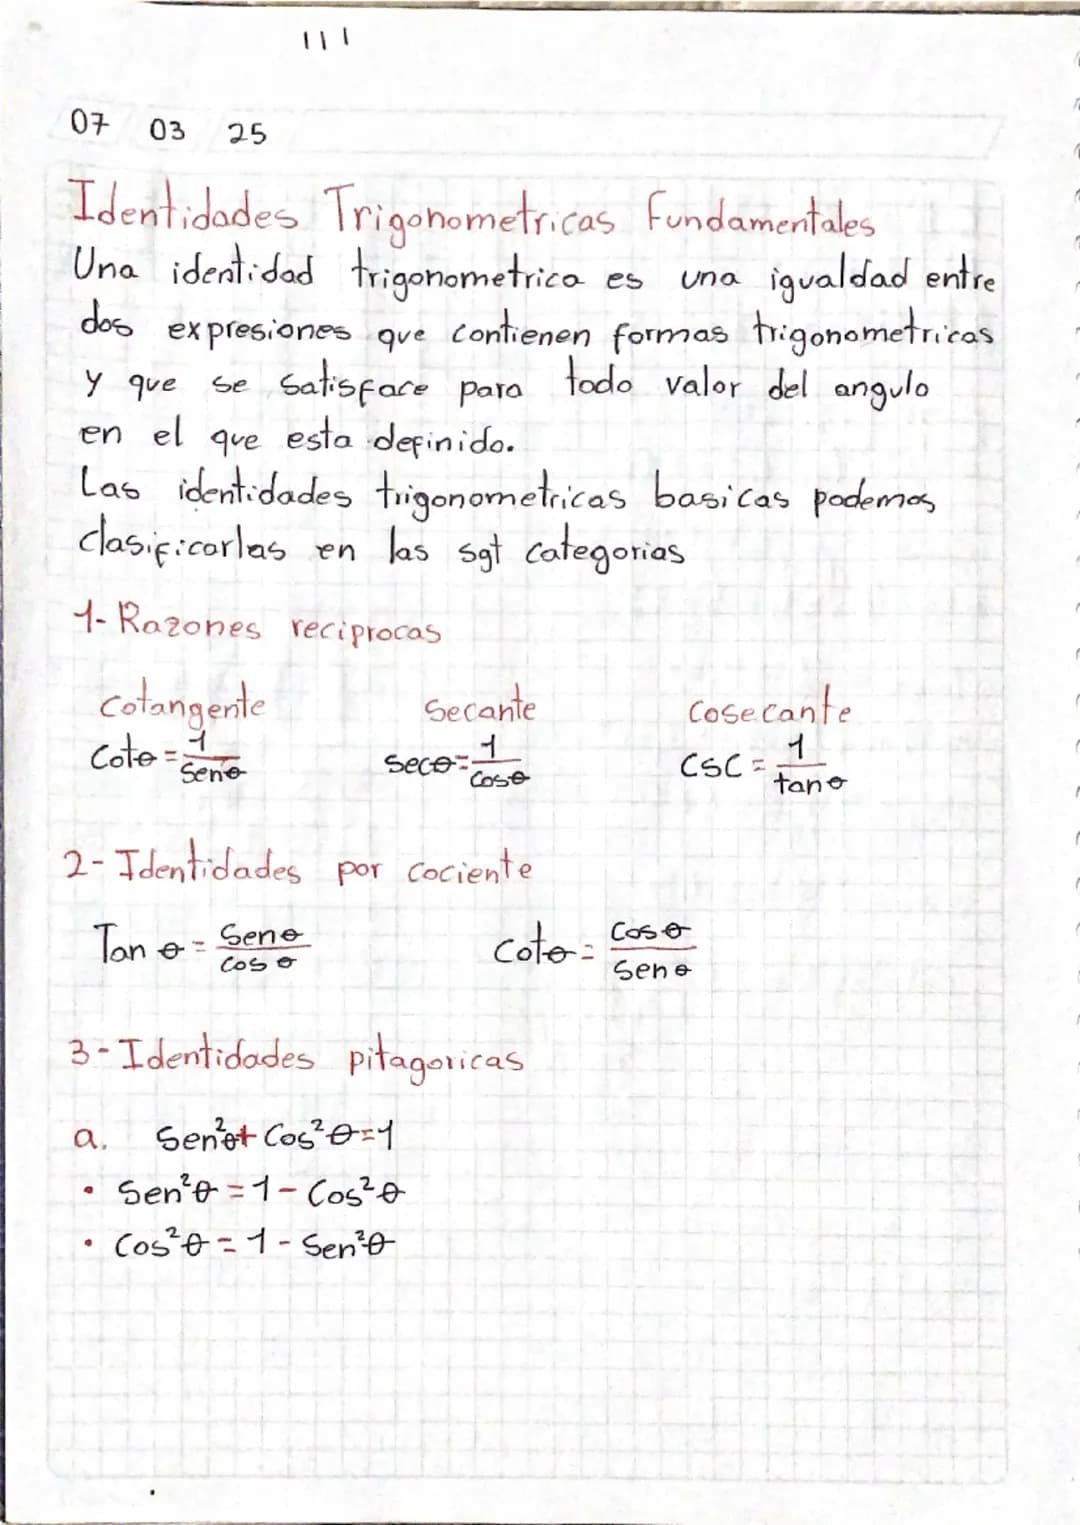 111
07 03 25
Identidades Trigonometricas Fundamentales
Una identidad trigonometrica es una igualdad entre
dos expresiones que contienen formas trigonometricas
y que se satisface para todo valor del angulo
en el que esta definido.
Las identidades trigonometricas basicas podemos
clasificarlas en las sgt categorias
1- Razones reciprocas
Cotangente Secante Cosecante
Cotθ = 1/Senθ Secθ = 1/Cosθ CSC = 1/tanθ
2- Identidades por cociente
Tan θ = Senθ/Cos θ Cotθ = Cosθ/Senθ
3- Identidades pitagoricas
a. Sen²θ + Cos²θ = 1
• Sen²θ = 1 - Cos²θ
• Cos²θ = 1 - Sen²θ